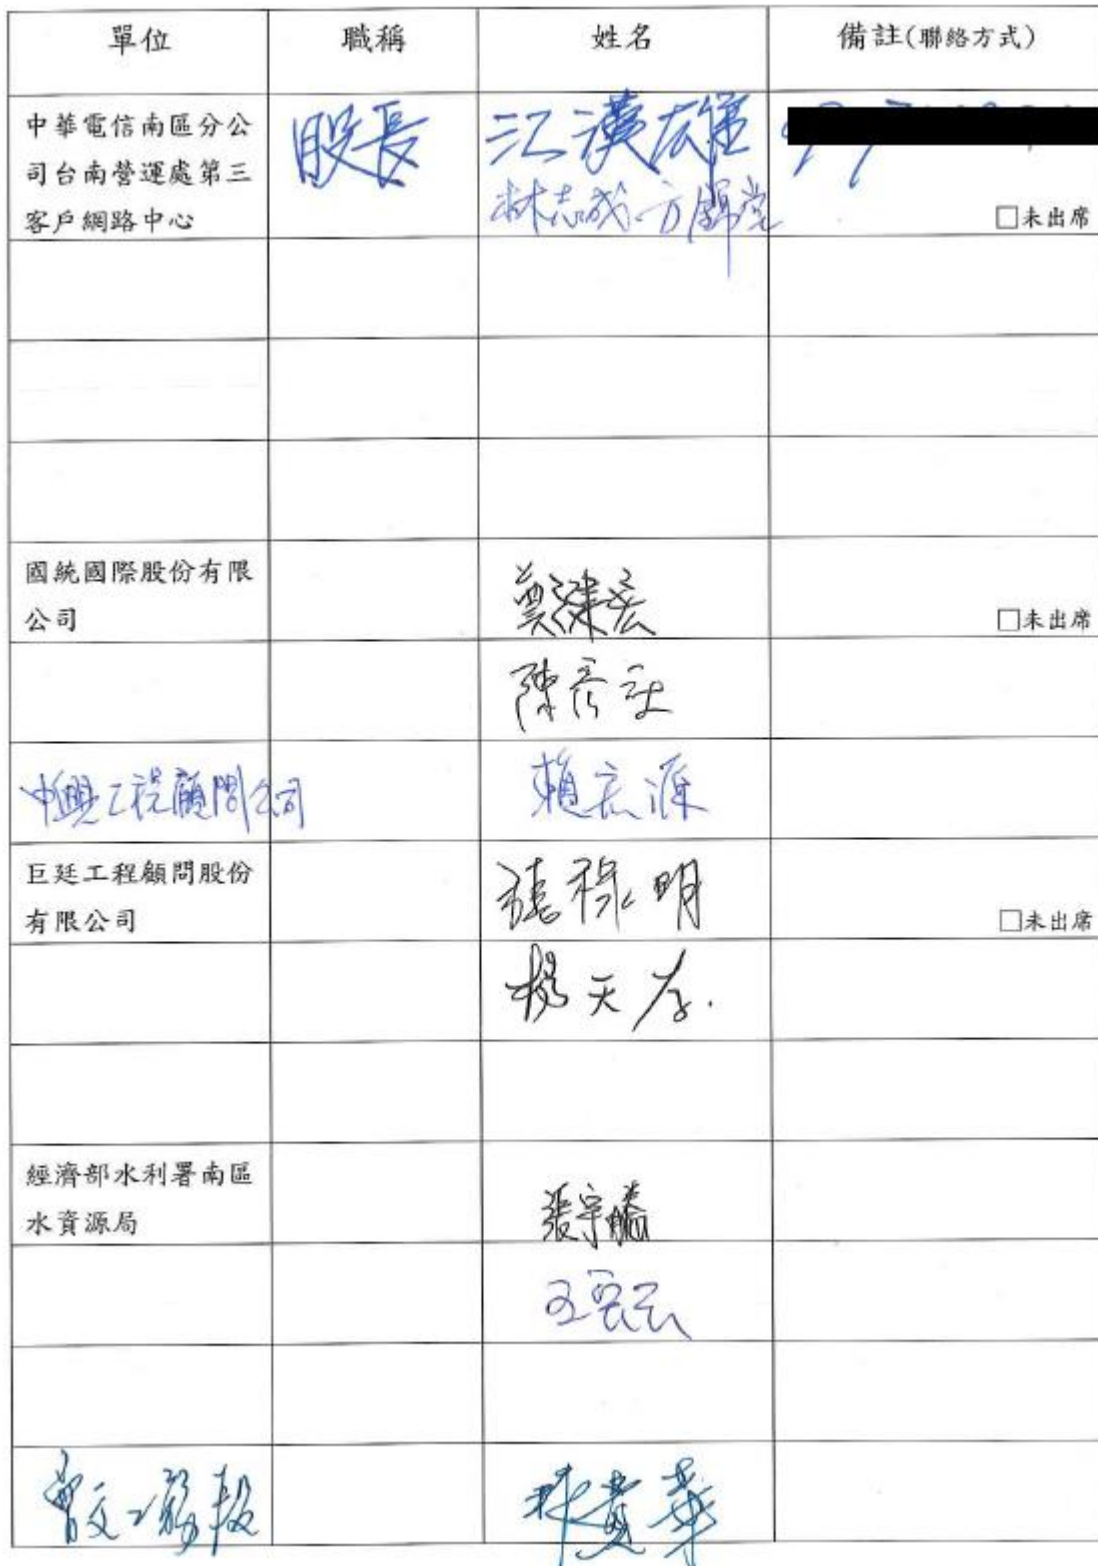 單位 職稱 姓名 備註(聯絡方式)
中華電信南區分公
司台南營運處第三
客戶網路中心
股長 江漢雄
林志成 方錦堂
□未出席
國統國際股份有限
公司
□未出席
陳彥
中興工程顧問公司 賴宏源
巨廷工程顧問股份
有限公司
祿明
□未出席
楊天
經濟部水利署南區
水資源局
張宇
曾文工務段 林貴華